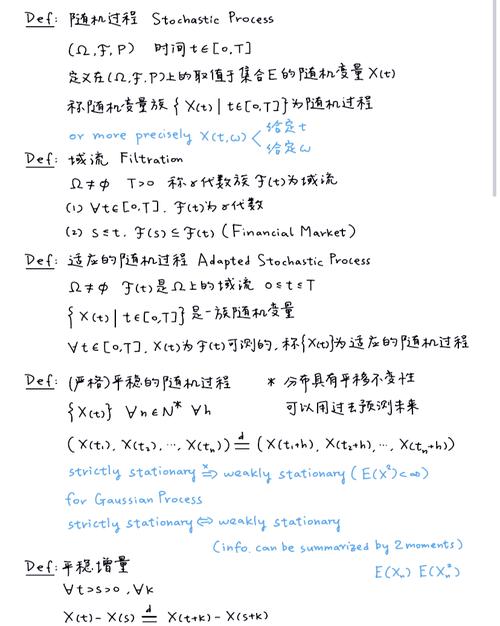 Def: 随机过程 Stochastic Process
(Ω,F,P) 时间 t∈[0,T]
定义在(Ω,F,P)上的取值于集合E的随机变量X(t)
称随机变量族{X(t)|t∈[0,T]}为随机过程
or more precisely X(t,ω) < 给定t
给定ω
Def: 域流 Filtration
Ω≠ϕ T>0 称σ代数族F(t)为域流
(1) ∀t∈[0,T], F(t)为σ代数
(2) s≤t, F(s)⊆F(t) (Financial Market)
Def: 适应的随机过程 Adapted Stochastic Process
Ω≠ϕ F(t)是Ω上的域流 0≤t≤T
{X(t)|t∈[0,T]}是一族随机变量
∀t∈[0,T], X(t)为F(t)可测的,称{X(t)}为适应的随机过程
Def: (严格)平稳的随机过程 * 分布具有平移不变性
{X(t)} ∀n∈N* ∀h 可以用过去预测未来
(X(t₁), X(t₂), ..., X(tₙ)) =ᵈ (X(t₁+h), X(t₂+h), ..., X(tₙ+h))
strictly stationary ⇒ˣ weakly stationary (E(X²)<∞)
for Gaussian Process
strictly stationary ⇔ weakly stationary
(info. can be summarized by 2 moments)
E(Xₙ) E(Xₙ²)
Def: 平稳增量
∀t>s>0, ∀k
X(t)-X(s) =ᵈ X(t+k)-X(s+k)